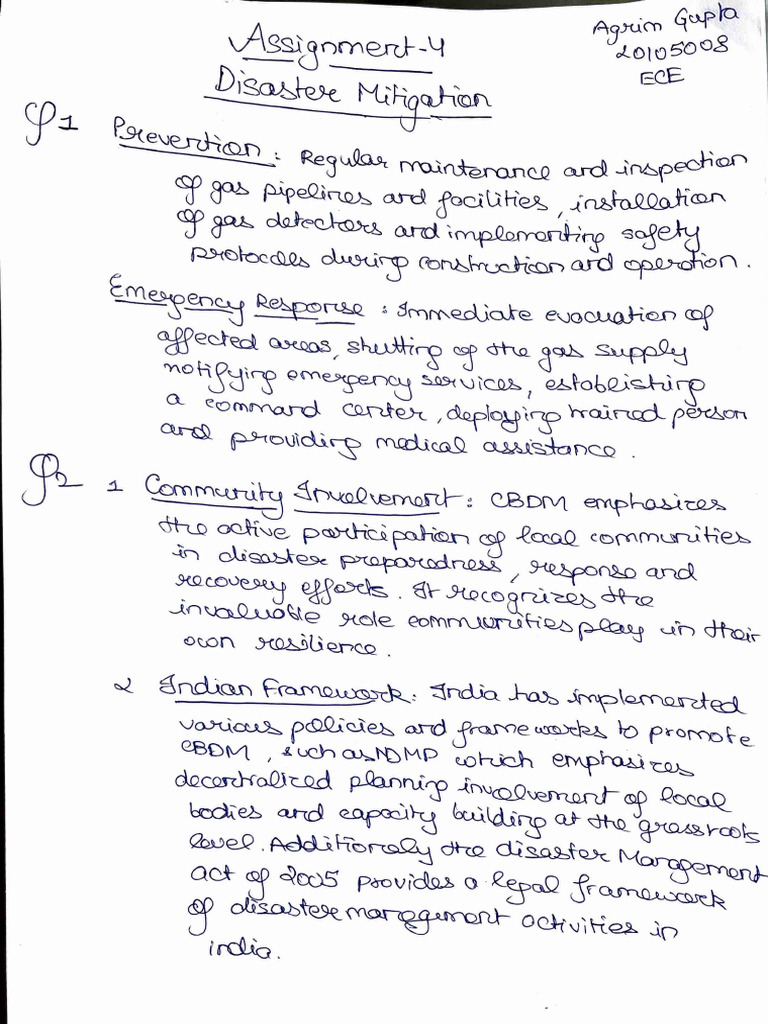 Assignment-4
Agrim Gupta
20105008
ECE
Disaster Mitigation
Q1 Prevention: Regular maintenance and inspection
of gas pipelines and facilities, installation
of gas detectors and implementing safety
protocols during construction and operation.
Emergency Response: Immediate evacuation of
affected areas, shutting of the gas supply
notifying emergency services, establishing
a command center, deploying trained person
and providing medical assistance.
Q2 1 Community Involvement: CBDM emphasizes
the active participation of local communities
in disaster preparedness, response and
recovery efforts. It recognizes the
invaluable role communities play in their
own resilience.
2 Indian Framework: India has implemented
various policies and frameworks to promote
CBDM, such as NDMP which emphasizes
decentralized planning involvement of local
bodies and capacity building at the grassroots
level. Additionally the disaster Management
act of 2005 provides a legal framework
of disaster management activities in
india.